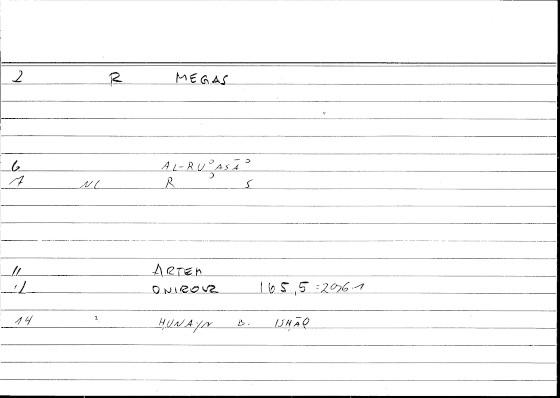 2 R MEGAS
6 AL-RUʾASĀʾ
7 NC R S
11 ARTEM
12 ONIROCR 165,5 :
14 HUNAYN B. ISHĀQ